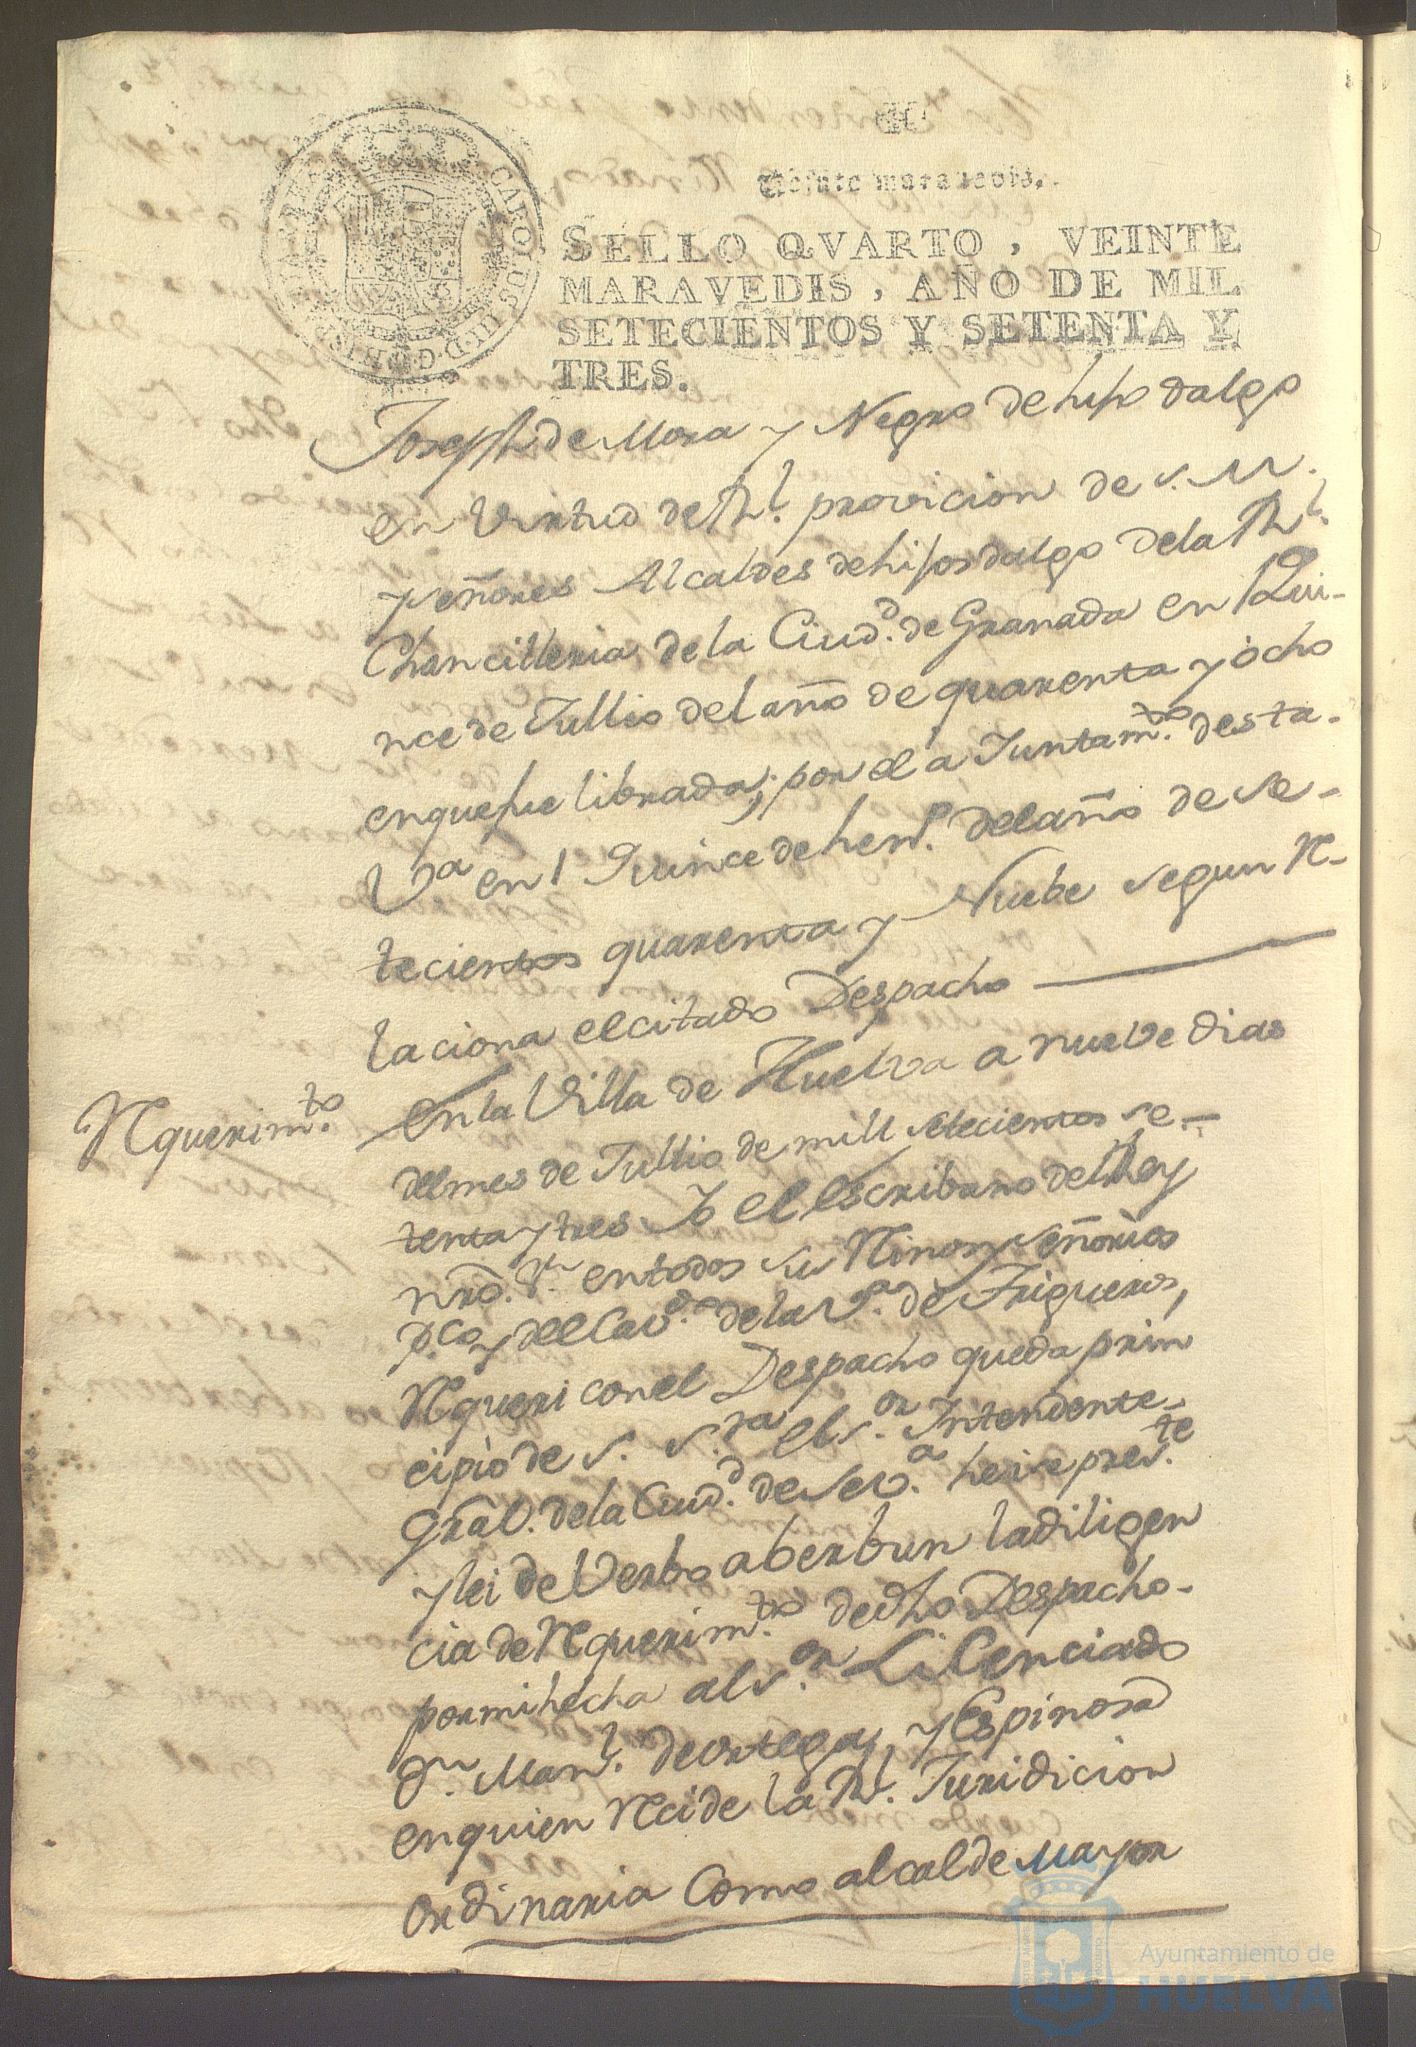 Veinte maravedis.
SELLO QVARTO, VEINTE
MARAVEDIS, AÑO DE MIL
SETECIENTOS Y SETENTA Y
TRES.
CAROLUS III D. G. HISP
Joseph de Mora y Negro de hijo dalgo
en Virtud de Rl. provicion de S. M.
y señores Alcaldes de hijos dalgo dela Rl.
Chancilleria de la Ciud.d de Granada en Qui-
nce de Jullio del año de quarenta y ocho
enque fue librada; por el a Juntam.to desta
V.a en Quince de hen.o del año de Se-
tecientos quarenta y Nuebe segun Re-
laciona el citado Despacho
Requerim.to
En la Villa de Huelva a nueve dias
del mes de Jullio de mill setecientos se-
tenta y tres Yo el escribano del Rey
nro. S.r entodos sus Reinos y señorios
p.co y del Cav.do de la V.a de Trigueros,
Requeri con el Despacho queda prin
cipio de S. S.ria el s.or Intendente
Gral. de la Ciud.d de Sev.a heise pres.te
y lei de Verbo aberbun la diligen
cia de Requerim.to de dho Despacho-
por mi hecha al s.or Licenciado
D.n Man.l de ortega, y Espinosa
enquien Recide la Rl. Juridicion
ordinaria Como alcalde Mayor
Ayuntamiento de
HUELVA